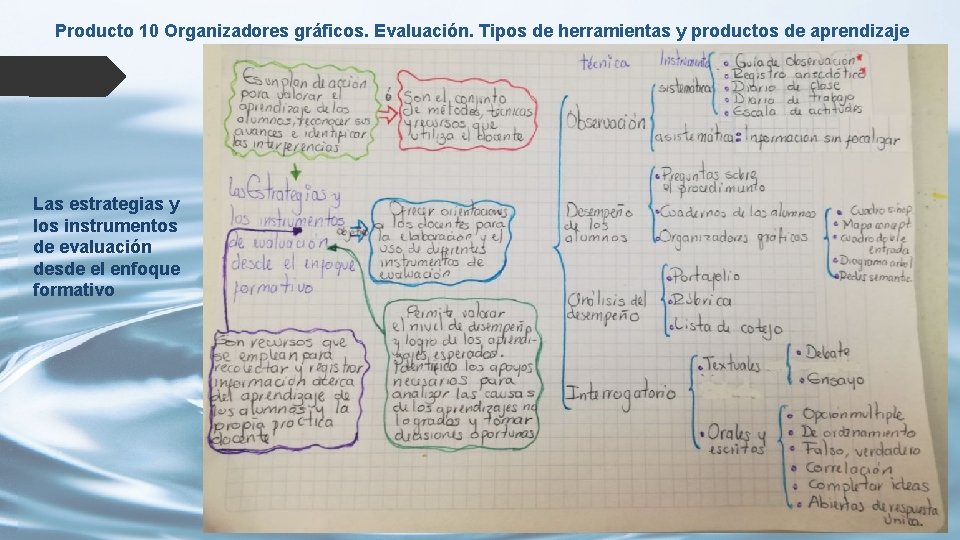 Producto 10 Organizadores gráficos. Evaluación. Tipos de herramientas y productos de aprendizaje
Las estrategias y
los instrumentos
de evaluación
desde el enfoque
formativo
Es un plan de acción
para valorar el
aprendizaje de los
alumnos, reconocer sus
avances e identificar
las interferencias
Son el conjunto
de métodos, técnicas
y recursos que
utiliza el docente
Las Estrategias y
los instrumentos
de evaluación
desde el enfoque
formativo
Ofrecer orientaciones
a los docentes para
la elaboración y el
uso de diferentes
instrumentos de
evaluación
Son recursos que
se emplean para
recolectar y registrar
información acerca
del aprendizaje de
los alumnos y la
propia práctica
docente
Permite valorar
el nivel de desempeño
y logro de los aprendi-
zajes esperados.
Identifica los apoyos
necesarios para
analizar las causas
de los aprendizajes no
logrados y tomar
decisiones oportunas
técnica
Instrumento
Observación
sistemática
Guía de observación
Registro anecdótico
Diario de clase
Diario de trabajo
Escala de actitudes
asistemática: Información sin focalizar
Desempeño
de los
alumnos
Preguntas sobre
el procedimiento
Cuadernos de los alumnos
Organizadores gráficos
Cuadro sinop
Mapa concept
cuadro doble
entrada
Diagrama árbol
Redes semantic.
Análisis del
desempeño
Portafolio
Rúbrica
Lista de cotejo
Interrogatorio
Textuales
Debate
Ensayo
Orales y
escritos
Opción multiple
De ordenamiento
Falso, verdadero
Correlación
Completar ideas
Abiertas de respuesta
única.